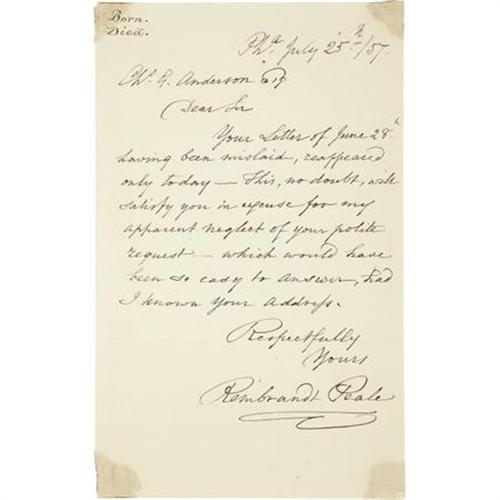 Born.
Died.
Pha. July 25th/57.
Chs. G. Anderson Esq
Dear Sir
Your Letter of June 28th
having been mislaid, reappeared
only today — This, no doubt, will
satisfy you in excuse for my
apparent neglect of your polite
request — which would have
been so easy to answer, had
I known your Address.
Respectfully
Yours
Rembrandt Peale